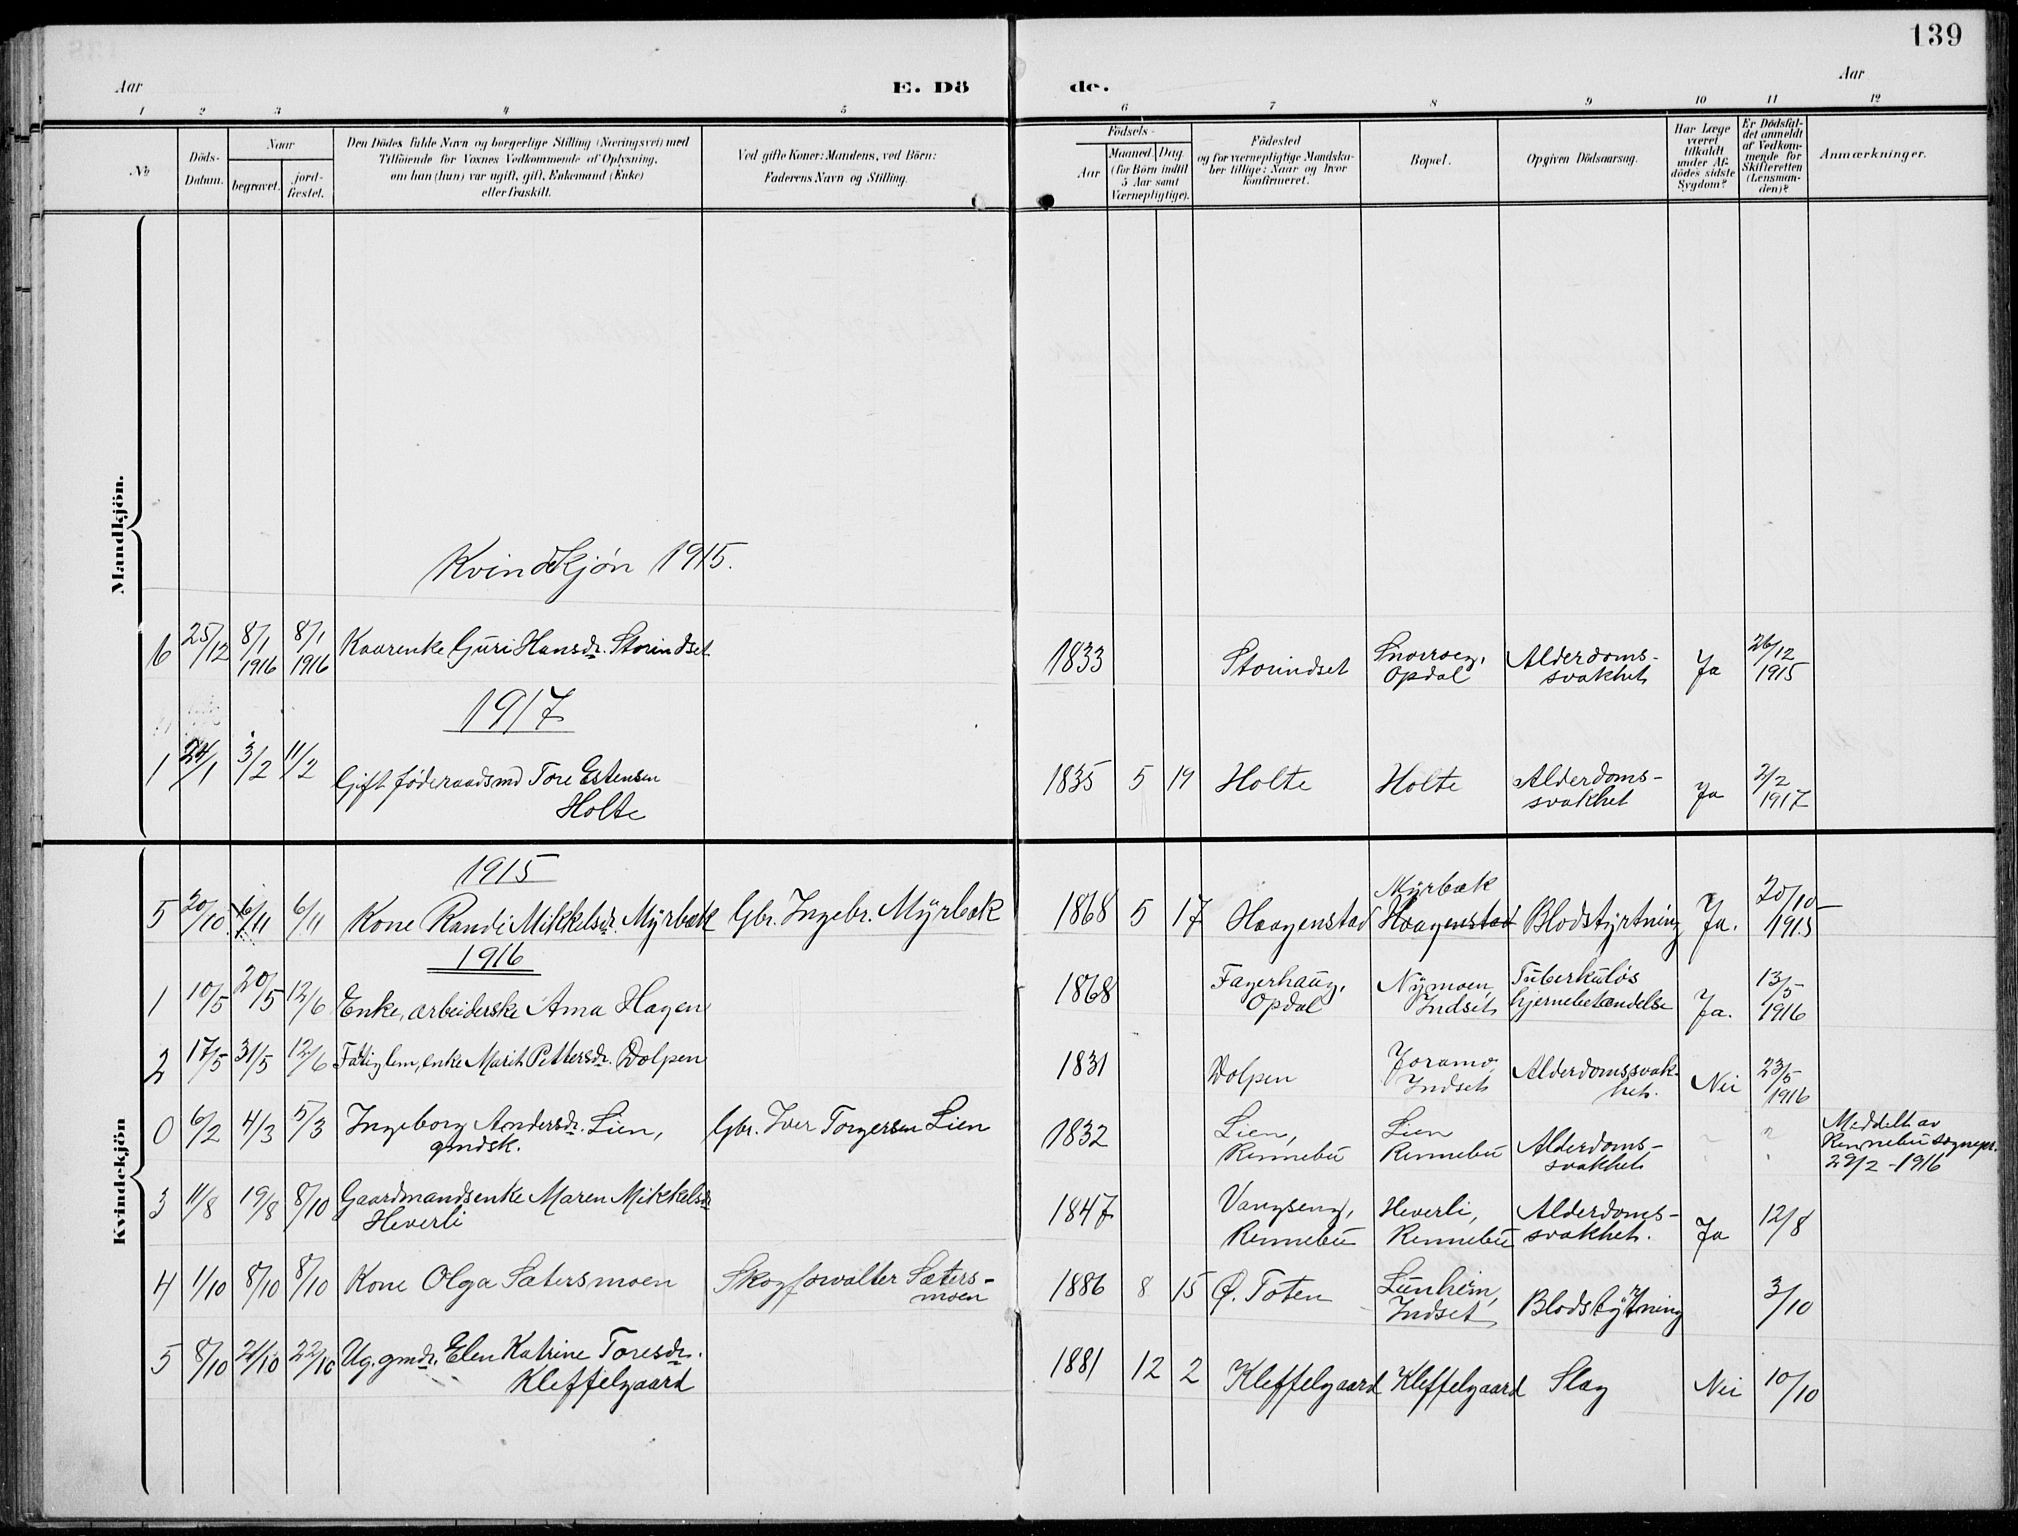 139
Aar
E. Dö
de.
Aar
1 2 3 4 5 6 7 8 9 10 11 12
No
Döds-
Datum.
Naar
begravet.
jord-
fæstet.
Den Dödes fulde Navn og borgerlige Stilling (Næringsvei) med
Tilföiende for Voxnes Vedkommende af Oplysning,
om han (hun) var ugift, gift, Enkemand (Enke)
eller fraskilt.
Ved gifte Koner: Mandens, ved Börn:
Faderens Navn og Stilling.
Födsels-
Aar
Maaned. Dag.
(for Börn indtil
5 Aar samt
Værnepligtige).
Födested
og for værnepligtige Mandska-
ber tillige: Naar og hvor
konfirmeret.
Bopæl.
Opgiven Dödsaarsag.
Har Læge
været
tilkaldt
under Af-
dödes sidste
Sygdom?
Er Dödsfal-
det anmeldt
af Vedkom-
mende for
Skifteretten
(Lensman-
den)?
Anmærkninger.
Mandkjön.
Kvindekjön 1915.
6 25/12 8/1 1916 8/1 1916 Kaarenke Guri Hansdr. Storindset 1833 Storindset Snorroeg, Opdal Alderdoms-
svakhet Ja 26/12 1915
1917
1 24/1 3/2 11/2 Gift föderaadsmd Tore Estensen
Holte 1835 5 19 Holte Holte Alderdoms-
svakhet Ja 2/2 1917
Kvindekjön
1915
5 20/10 6/11 6/11 Kone Randi Mikkelsdr. Myrbæk Gbr. Ingebr. Myrbæk 1868 5 17 Haagenstad Myrbæk Haagenstad Blodstyrtning Ja. 20/10 1915
1916
1 10/5 20/5 12/6 Enke, arbeiderske Anna Hagen 1868 Fagerhaug, Opdal Nymoen, Indset Tuberkuløs
hjernebetændelse Ja. 13/5 1916
2 17/5 31/5 12/6 Fattiglem, enke Marit Pettersdr. Dolpen 1831 Dolpen Joramo, Indset Alderdomssvak-
het. Nei 23/5 1916
0 6/2 4/3 5/3 Ingeborg Andersdr. Lien,
gmdsk. Gbr. Iver Torgersen Lien 1832 Lien, Rennebu Lien Rennebu Alderdoms-
svakhet ? ? Meddelt av
Rennebu sognepr.
29/2 - 1916
3 11/8 19/8 8/10 Gaardmandsenke Maren Mikkelsdr
Heverli 1847 Vangseng, Rennebu Heverli, Rennebu Alderdoms-
svakhet. Ja 12/8
4 1/10 8/10 8/10 Kone Olga Sætersmoen Skogforvalter Sæters-
moen 1886 8 15 Ø. Toten Lunheim, Indset Blodstyrtning 3/10
5 8/10 21/10 22/10 Ug. gmdr. Elen Katrine Toresdr.
Kleffelgaard 1881 12 2 Kleffelgaard Kleffelgaard Slag Nei 10/10